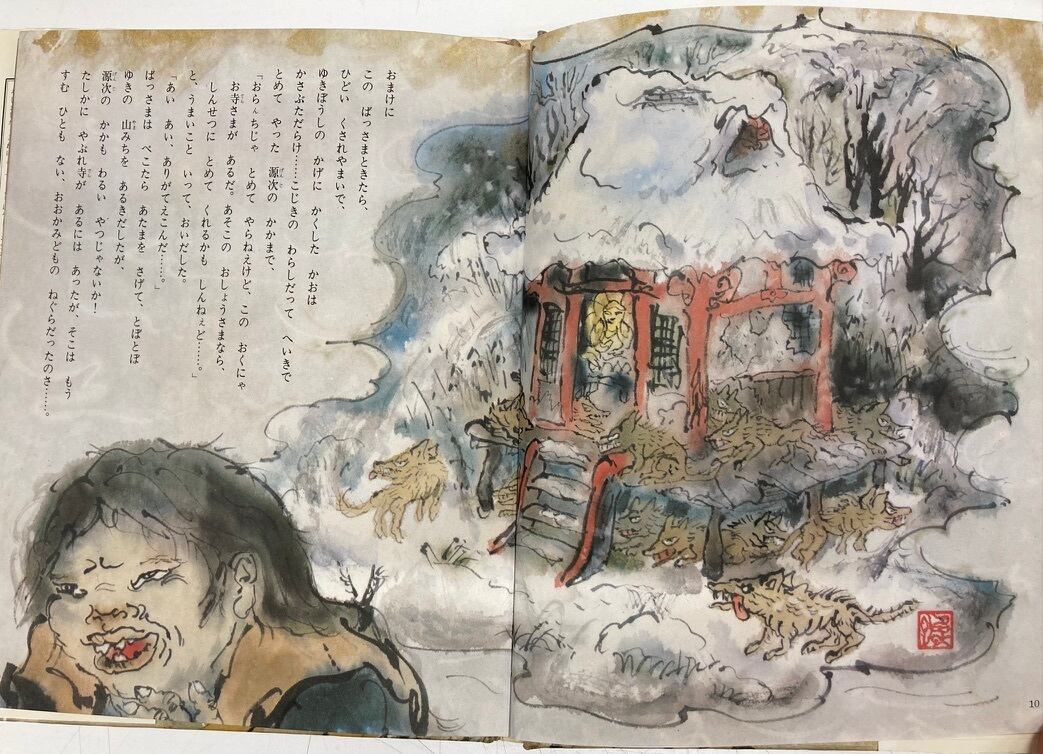 おまけに
この　ばっさまときたら、
ひどい　くされやまいで、
ゆきぼうしの　かげに　かくした　かおは
かさぶただらけ……こじきの　わらしだって　へいきで
とめて　やった　源次の　かかまで、
「おらぁちじゃ　とめて　やらねえけど、この　おくにゃ
お寺さまが　あるだ。あそこの　おしょうさまなら、
しんせつに　とめて　くれるかも　しんねぇど……。」
と、うまいこと　いって、おいだした。
「あい　あい、ありがてえこんだ……。」
ばっさまは　ぺこたら　あたまを　さげて、とぼとぼ
ゆきの　山みちを　あるきだしたが、
源次の　かかも　わるい　やつじゃないか！
たしかに　やぶれ寺が　あるには　あったが、そこは　もう
すむ　ひとも　ない、おおかみどもの　ねぐらだったのさ……。
10